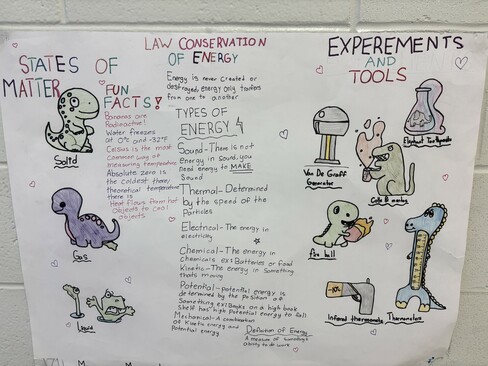 STATES OF
MATTER
Solid
Gas
Liquid
FUN
FACTS!
Bananas are
Radioactive!
Water freezes
at 0°C and -32°F
Celsius is the most
common way of
measuring temperature
Absolute zero is
the coldest there/
theoretical temperature
there is
Heat flows from hot
Objects to cool
objects
LAW CONSERVATION
OF ENERGY
Energy is never created or
destroyed, energy only tranfers
from one to another
TYPES OF
ENERGY
Sound- There is not
Energy in sound, you
need energy to MAKE
Sound
Thermal- Determined
by the speed of the
Particles
Electrical- The energy in
electricity
Chemical- The energy in
Chemicals ex: Batteries or food
Kinetic- The energy in Something
thats moving
Potential- potential energy is
determined by the position of
Something ex: Books on a high book
Shelf has high Potential energy to fall
Mechanical- A combination
of Kinetic energy and
Potential energy
Defintion of Energy
A measure of something's
ability to do work
EXPEREMENTS
AND
TOOLS
Elephant Toothpaste
Van De Graff
Generator
fire ball
Infered thermometer
Thermometers